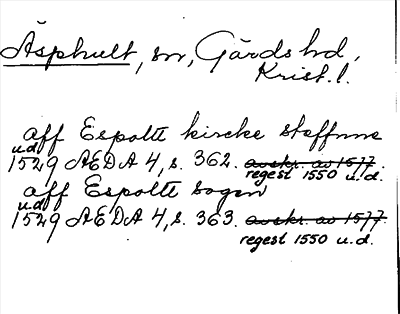 Äsphult, sn, Gärds hd,
Krist. l.
aff Espolte kircke steffnne
u.d.
1529 ÆDA 4, s. 362. avskr. av 1577.
regest 1550 u.d.
aff Espolte sogen
u.d.
1529 ÆDA 4, s. 363. avskr. av 1577.
regest 1550 u.d.